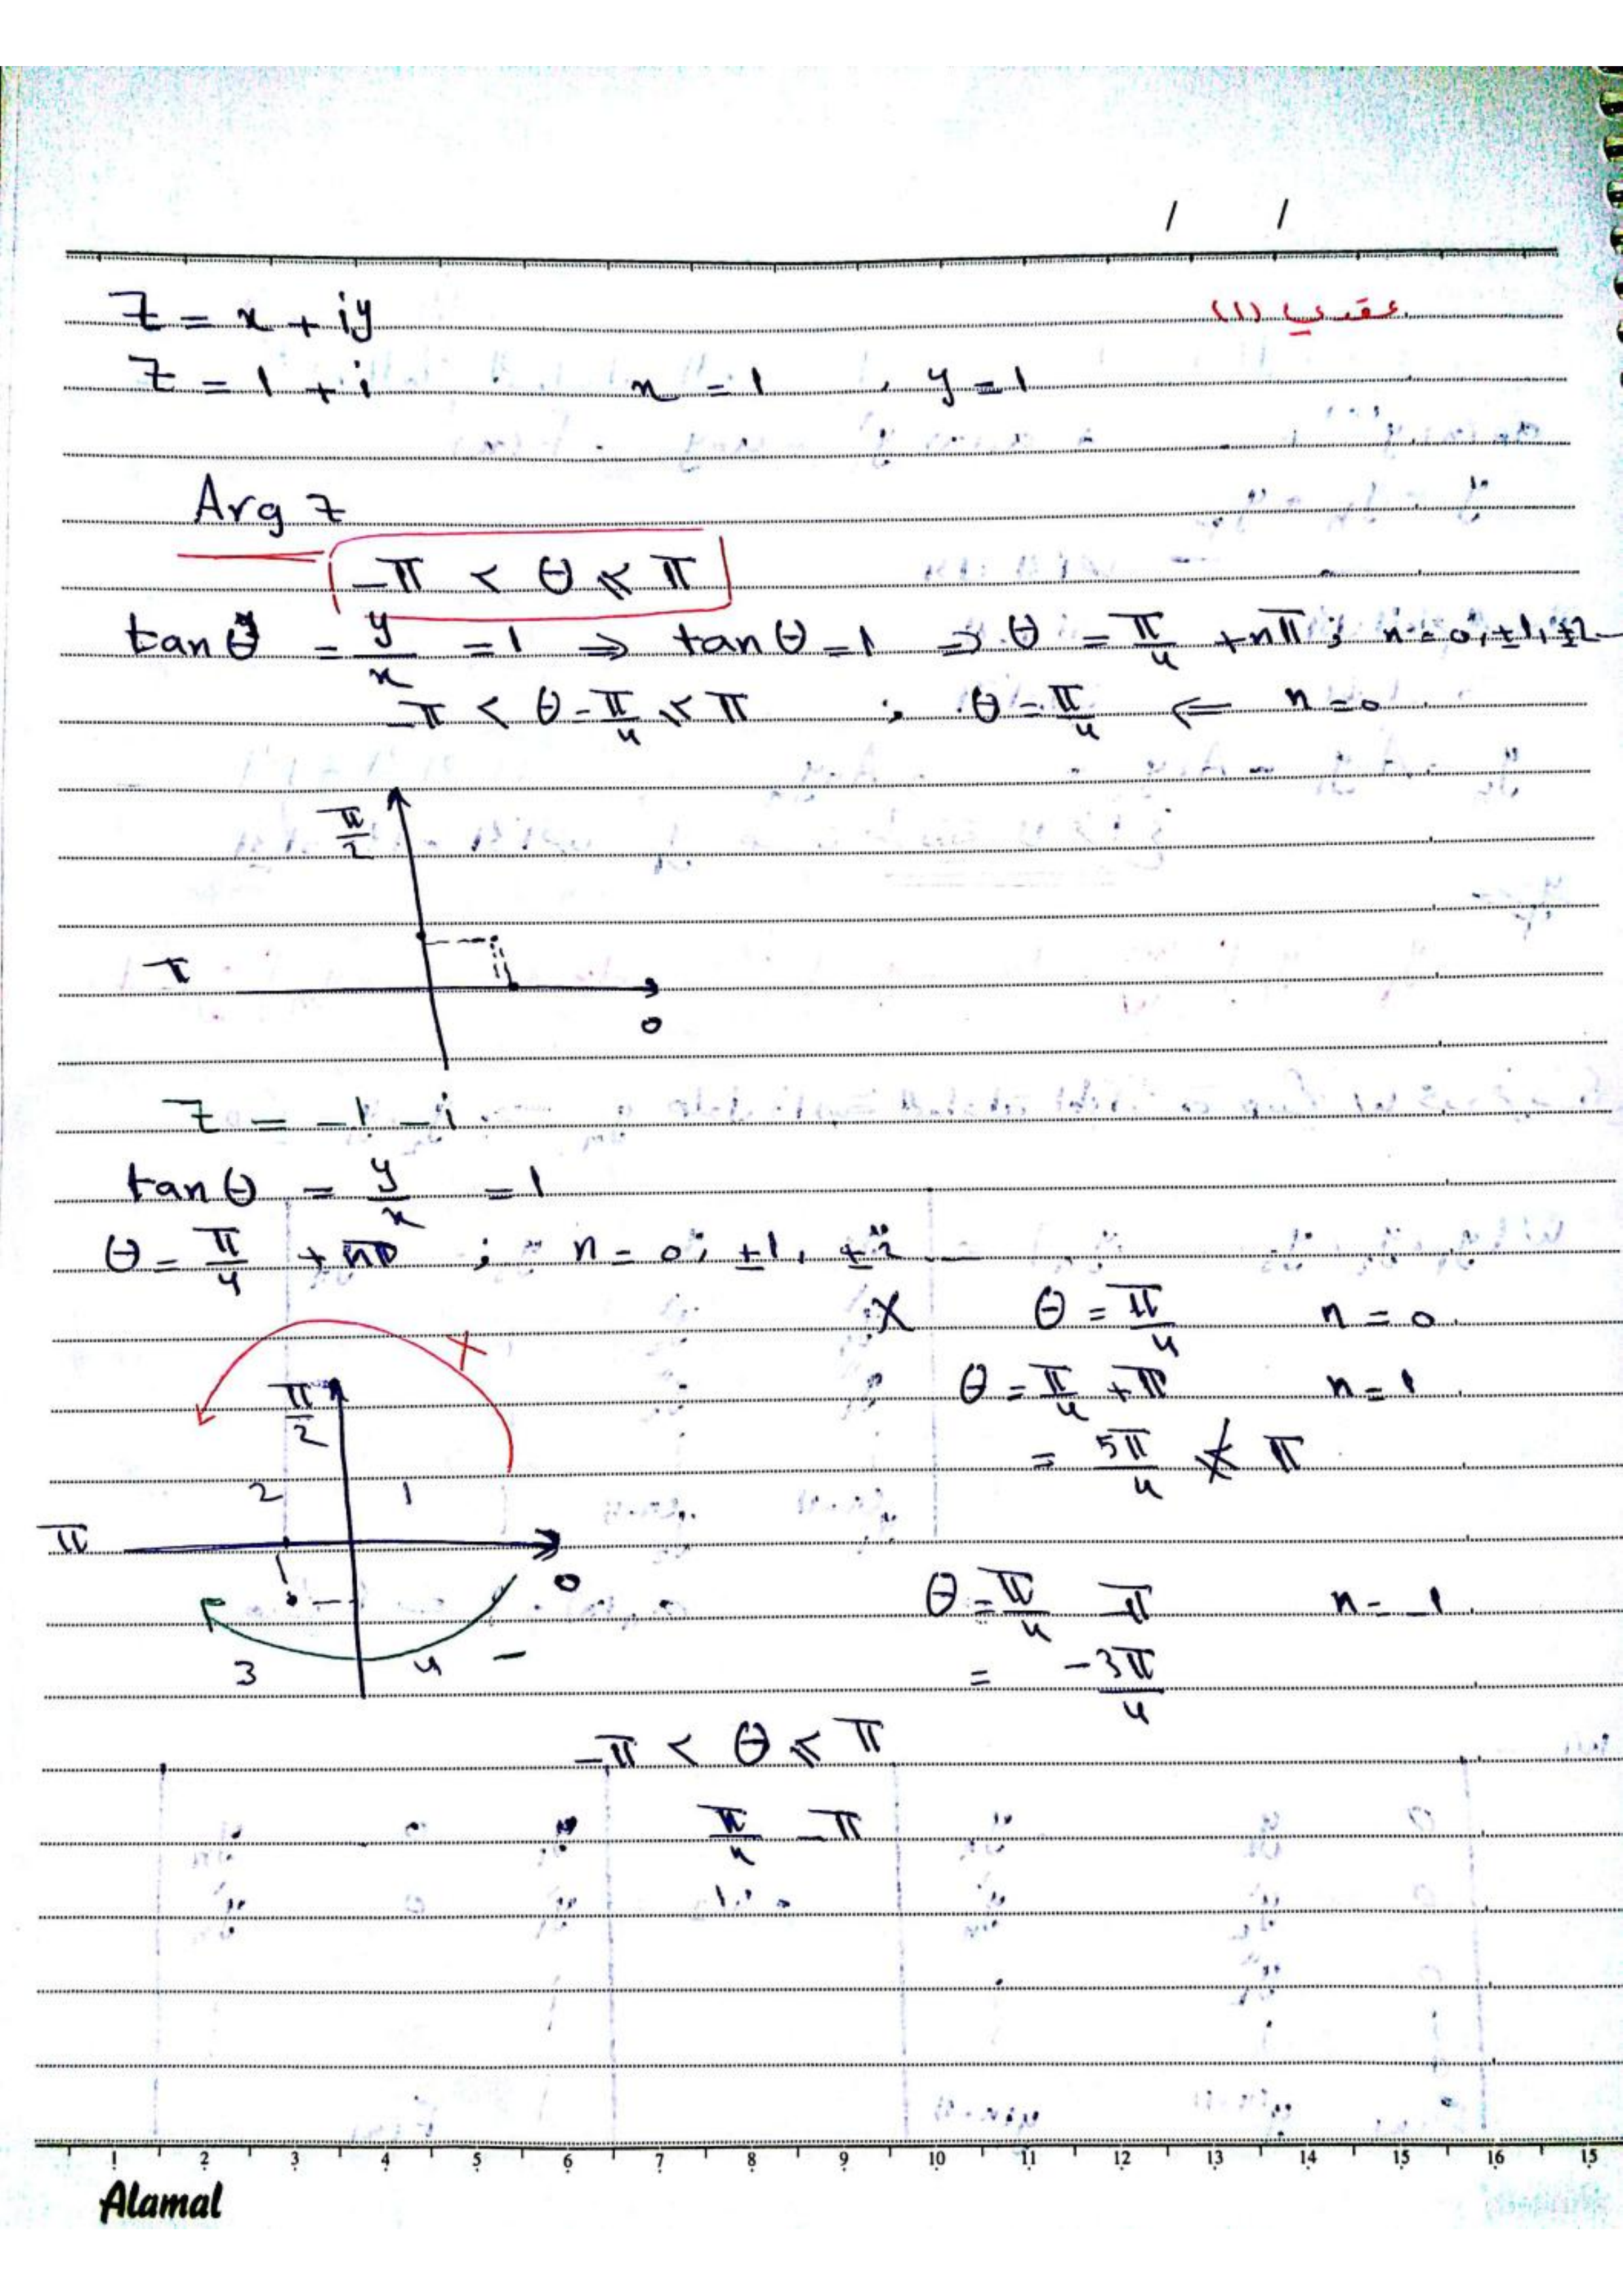 / /
عقدي (١)
z = x + iy
z = 1 + i x = 1 , y = 1
Arg z
-π < θ ≤ π
tan θ = y/x = 1 ⇒ tan θ = 1 ⇒ θ = π/4 + nπ ; n = 0, ±1, ±2 -
-π < θ = π/4 ≤ π ; θ = π/4 ⇐ n = 0
π/2
π
0
z = -1 - i
tan θ = y/x = 1
θ = π/4 + nπ ; n = 0, ±1, ±2 —
X θ = π/4 n = 0
θ = π/4 + π n = 1
= 5π/4 ≰ π
X
π/2
2 1
π
0
3 4 -
θ = π/4 - π n = -1
= -3π/4
-π < θ ≤ π
π/4 - π
1 2 3 4 5 6 7 8 9 10 11 12 13 14 15 16 15
Alamal